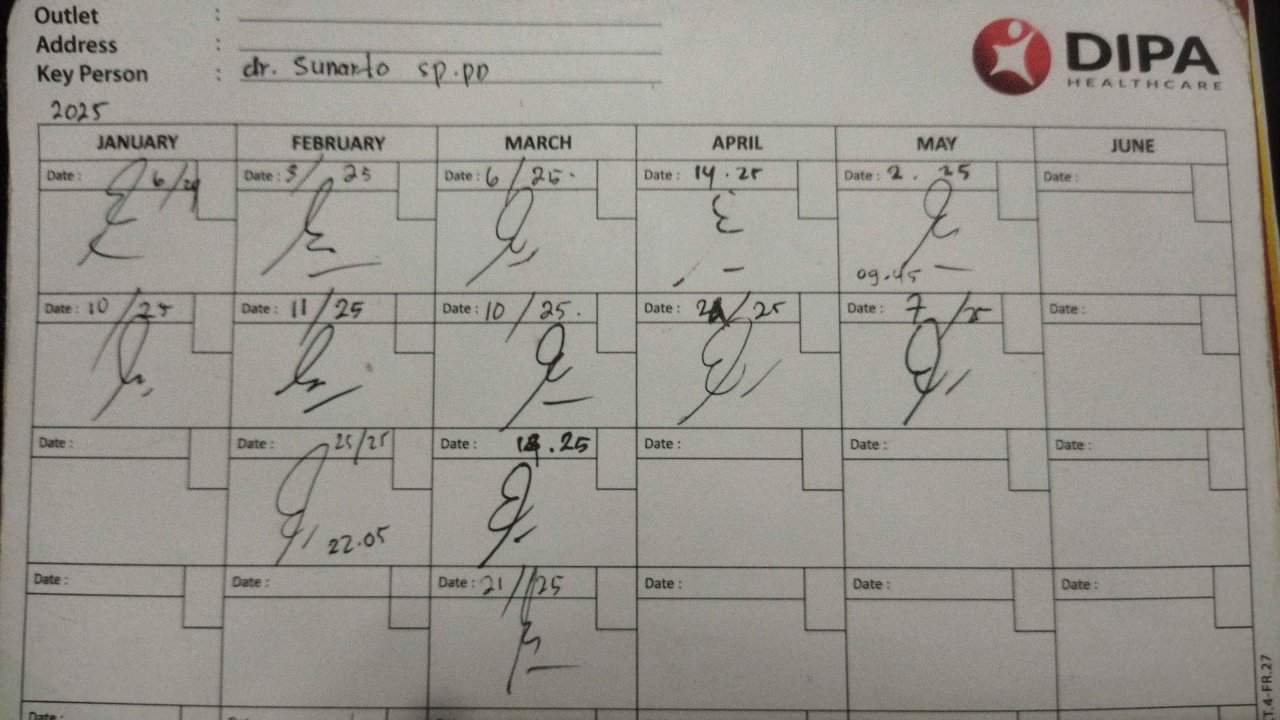 Outlet :
Address :
Key Person : dr. Sunarto sp.pD
DIPA
HEALTHCARE
2025
JANUARY FEBRUARY MARCH APRIL MAY JUNE
Date : 6/ Date : 5/25 Date : 6/25. Date : 14.25 Date : 2.25 Date :
09.45
Date : 10/25 Date : 11/25 Date : 10/25. Date : /25 Date : 7/25 Date :
Date : Date : 25/25 Date : .25 Date : Date : Date :
22.05
Date : Date : Date : 21/25 Date : Date : Date :
Date :
T.4-FR.27